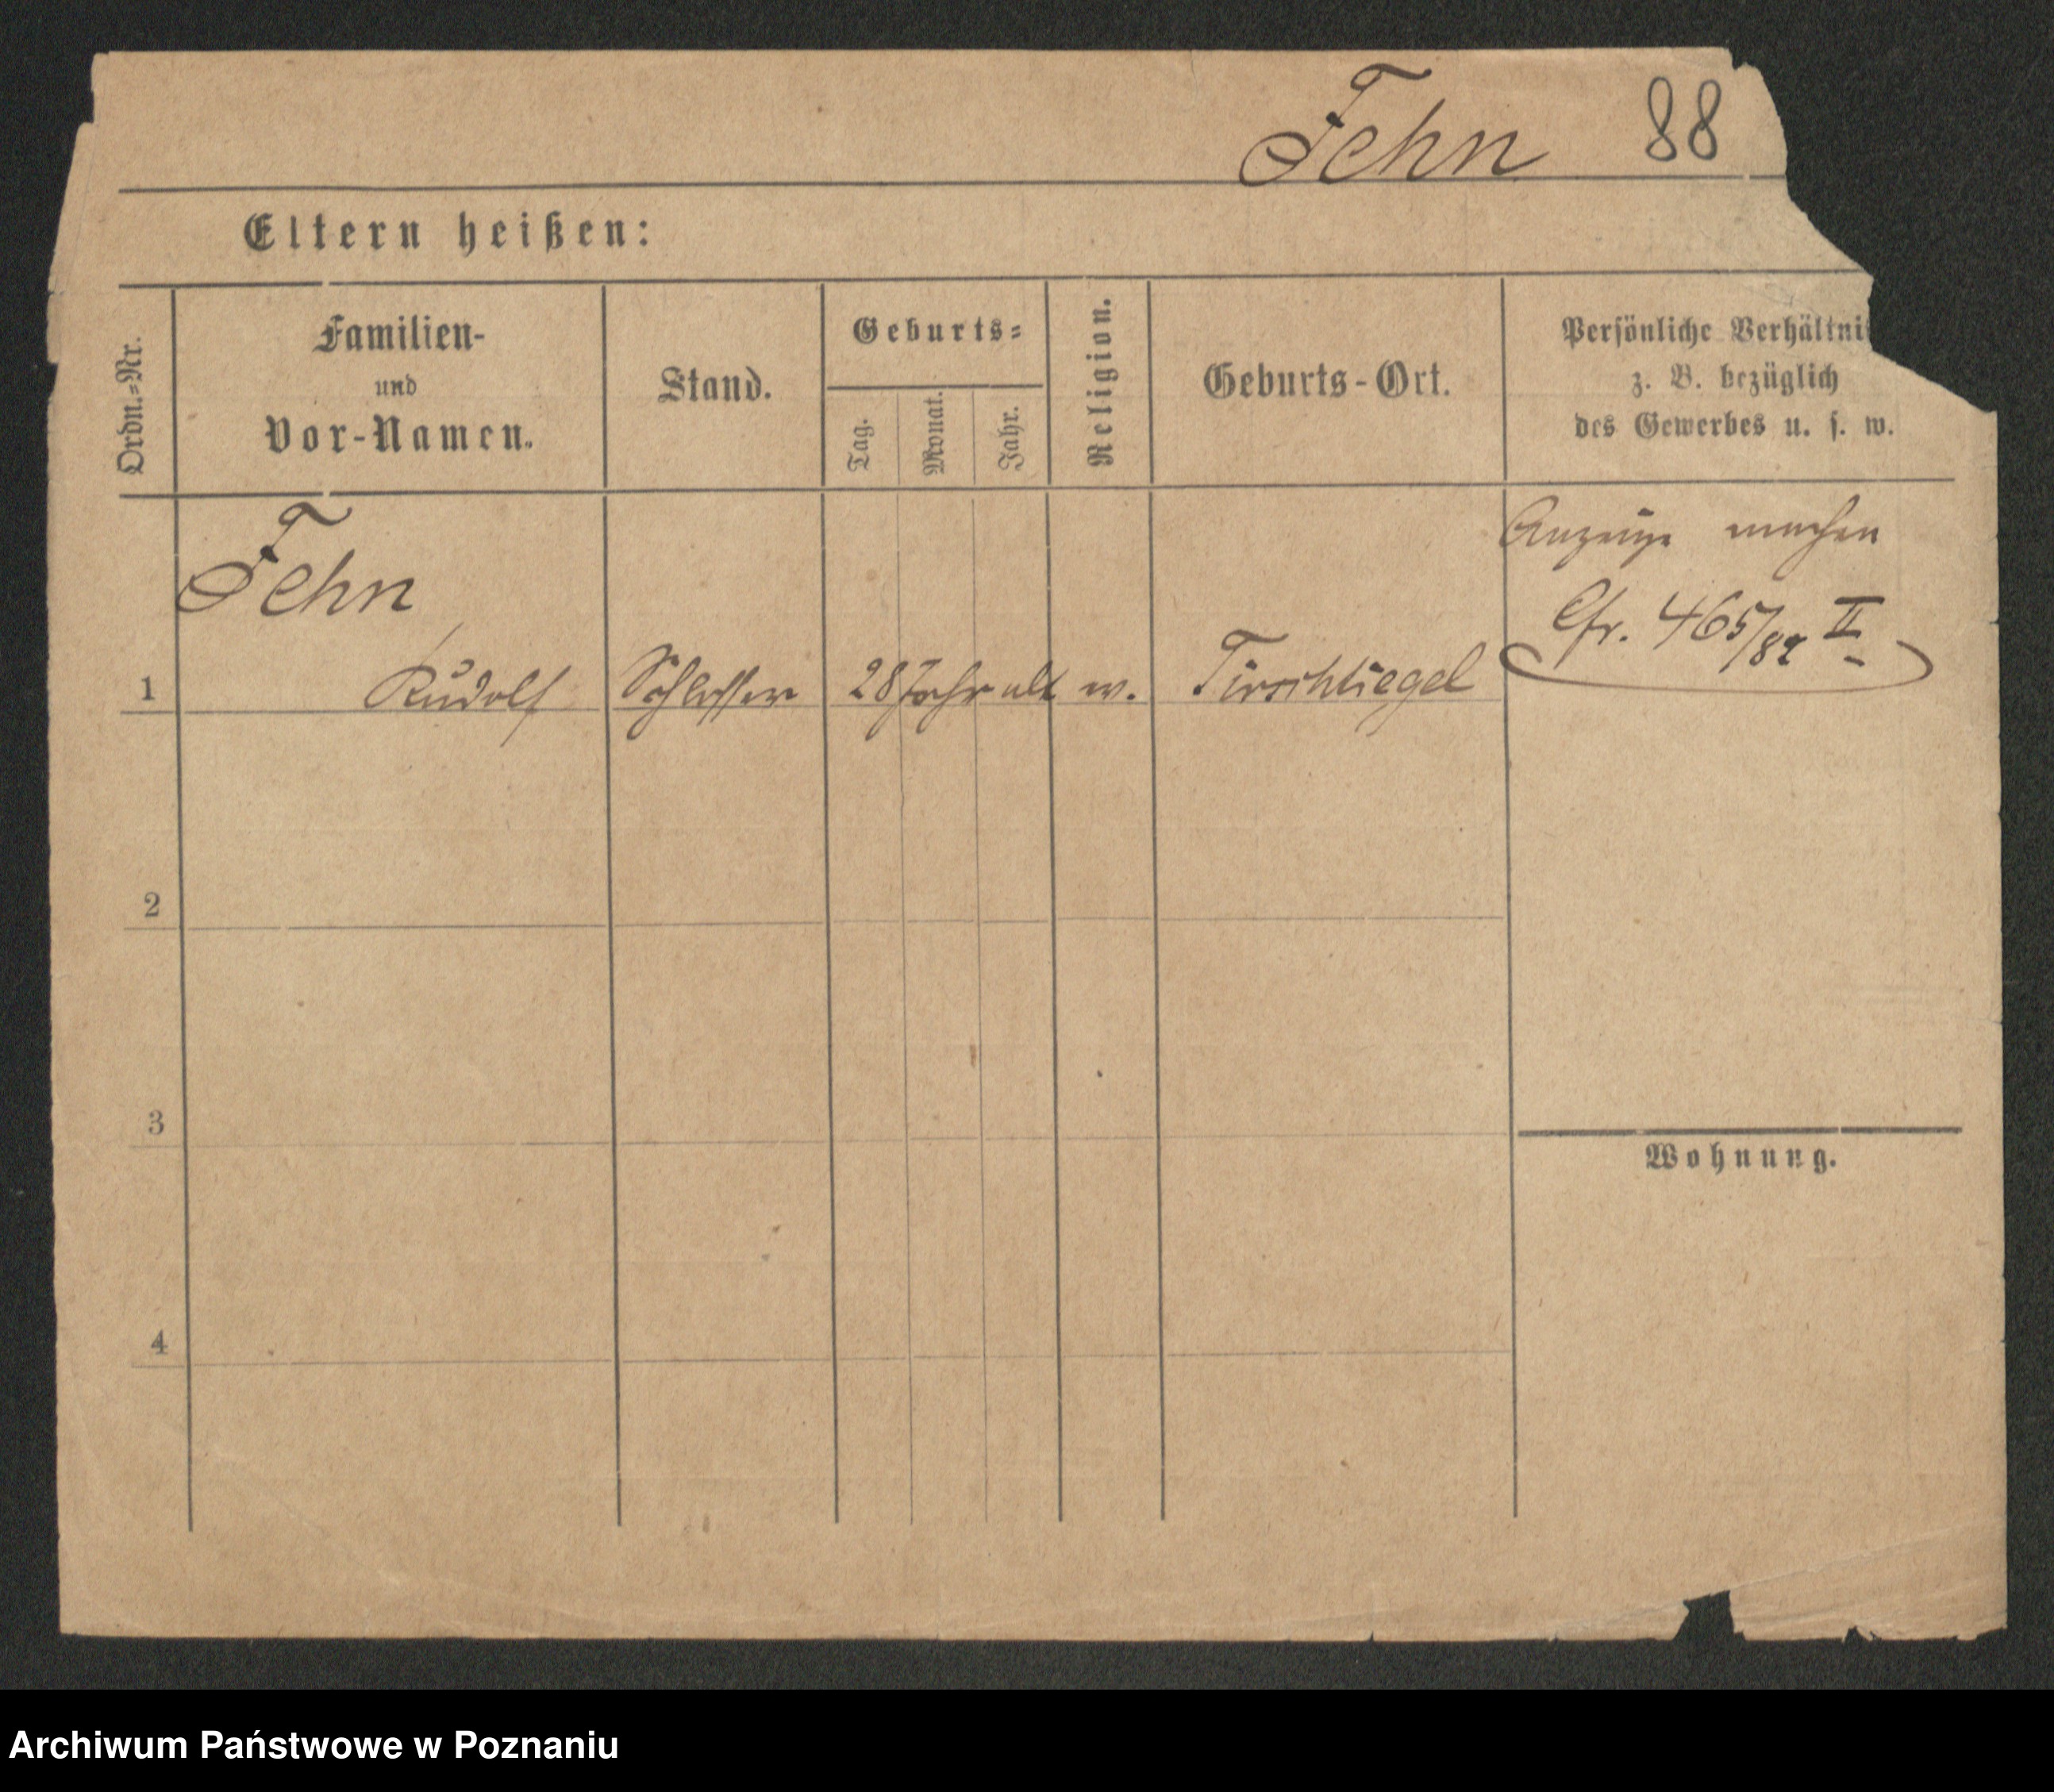 Fehn 88
Eltern heißen:
Ordn.=Nr.
Familien-
und
Vor-Namen.
Stand.
Geburts=
Tag.
Monat.
Jahr.
Religion.
Geburts-Ort.
Persönliche Verhältni
z. B. bezüglich
des Gewerbes u. s. w.
Fehn
Anzeige machen
Cfr. 465/82 II
1 Rudolf Schlosser 28 Jahr alt Tirschtiegel
2
3
Wohnung.
4
Archiwum Państwowe w Poznaniu